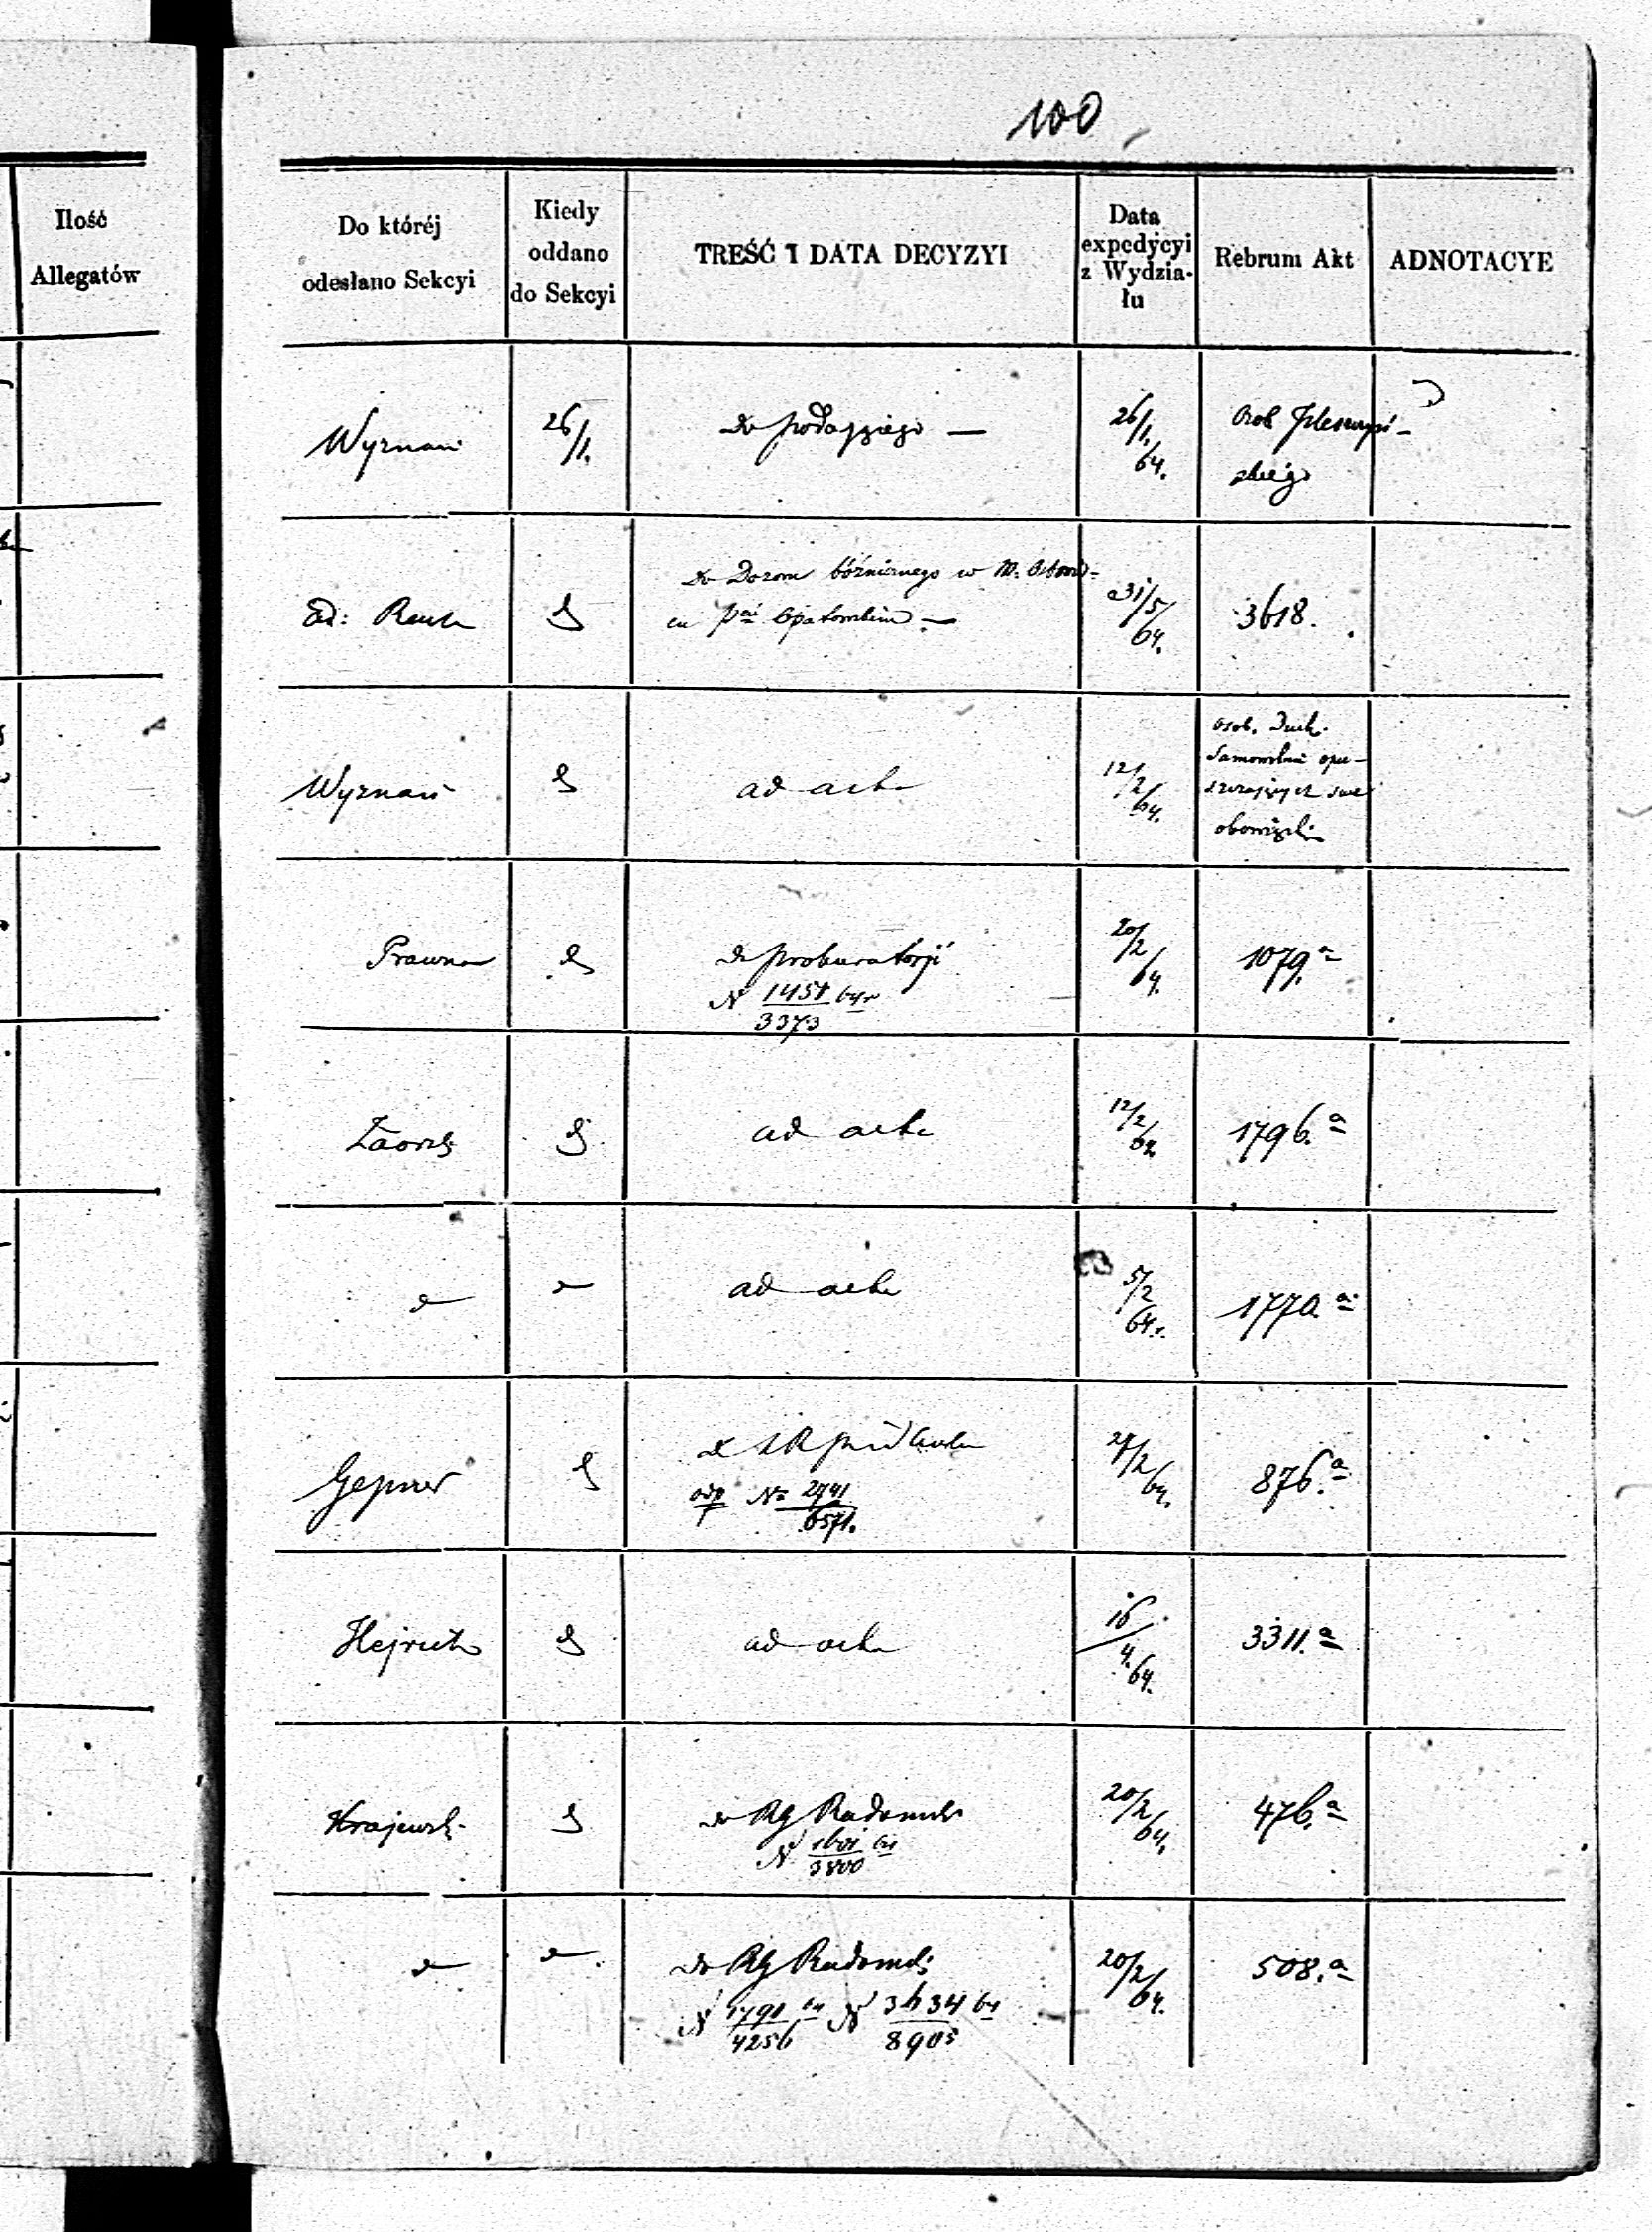 100
Ilość
Allegatów
Do któréj
odesłano Sekcyi
Kiedy
oddano
do Sekcyi
TREŚĆ I DATA DECYZYI
Data
expedycyi
z Wydzia-
łu
Rebrum Akt
ADNOTACYE
Wyznań
26/1.
do
26/1.
64.
Osob
skiego
Do Dozoru bóżniczego w M.
cu Opatowskim —
31/5/
64.
3618.
Wyznań
ad acta
12/2/
64.
Osob. Duch.
Samowolnie opu-
szczających swe
obowiązki
Prawna
do prokuratorji
N 1451 64r
3373
20/2/
64.
1079.a
ad acta
12/2/
64.
1796.a
ad acta
5/2
64r.
1770.a
Gepner
odp No 2741
6571.
64.
876.a
ad acta
16
4.
64.
3311.a
Krajewski
do RG Radomski
N 1601 64
3800
20/2/
64.
476.a
do RG Radomski
N 1791 64 N 3634 64
4256 8903
20/2/
64.
508.a